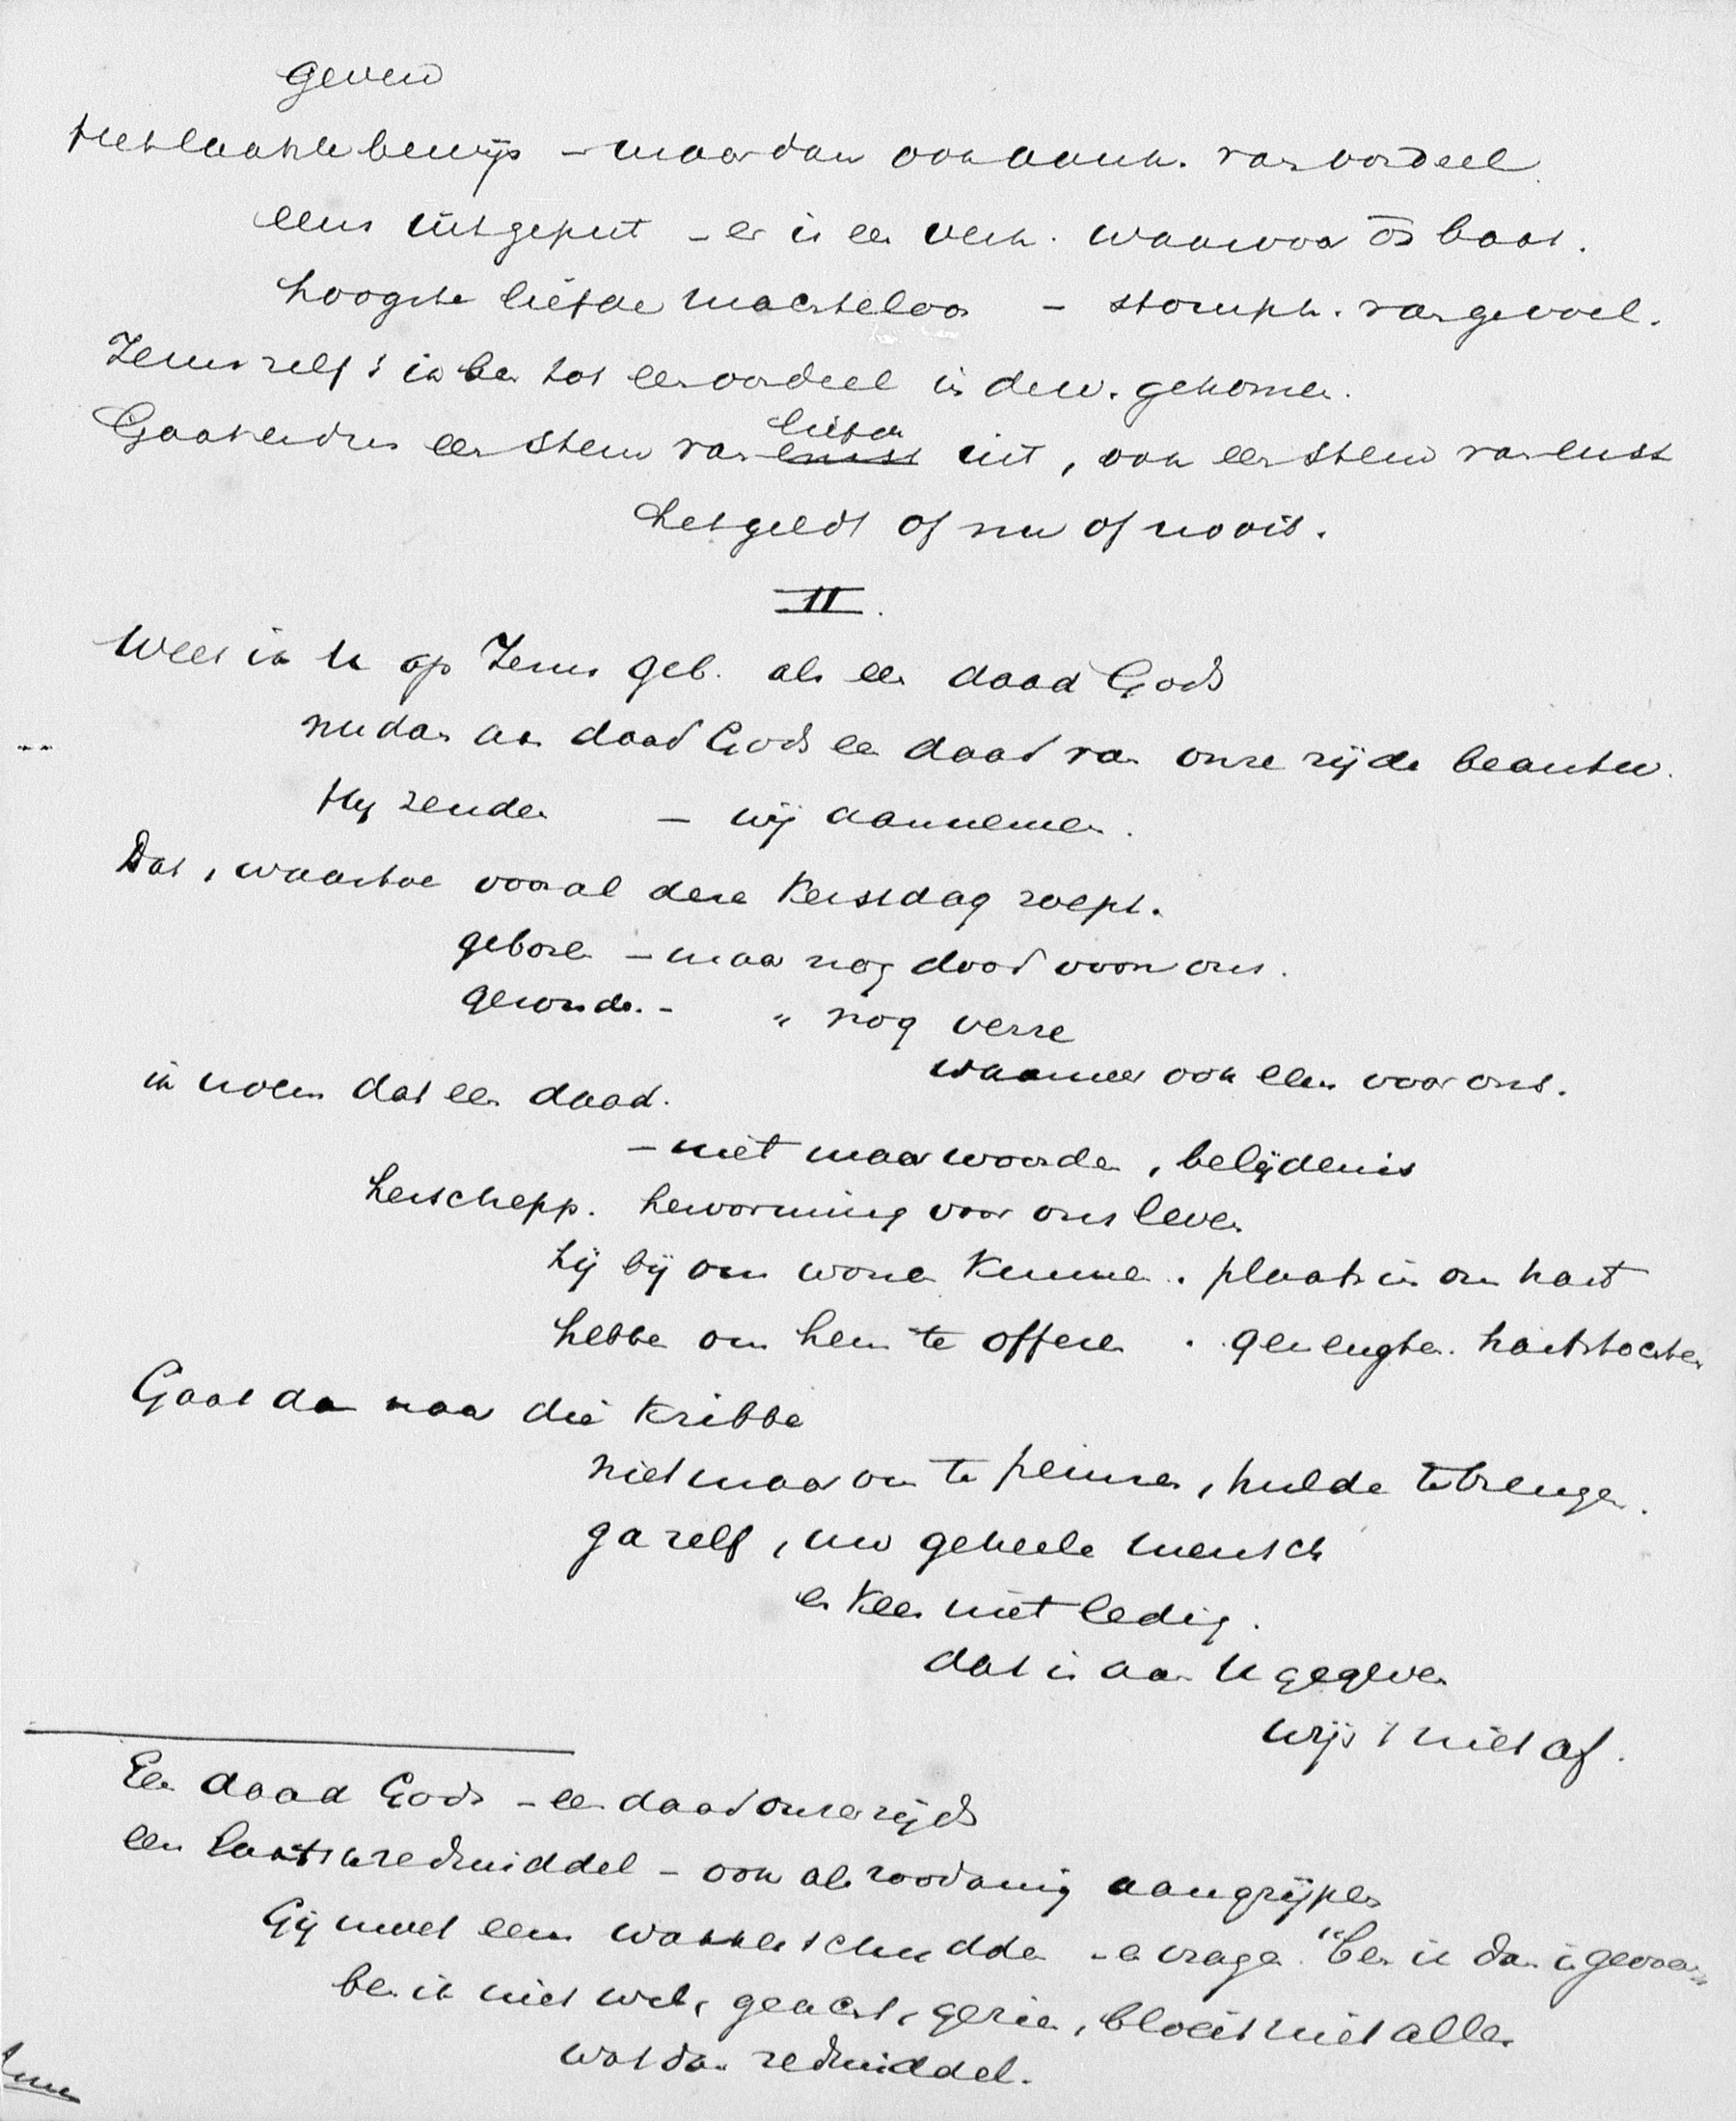 geven
Het laatste bewijs – maar dan ook aank. van oordeel.
eens uitgeput – er is een verh. waarvoor 0 baat.
hoogste liefde machteloos – stomph. van gevoel.
Jezus zelf: ik ben tot een oordeel in de w. gekomen.
Gaat en dus een stem van ernst liefde uit, ook een stem van ernst
het geldt of nu of nooit.
II.
Wees ik U op Jezus geb. als een daad Gods
nu dan aan daad Gods een daad van onze zijde beantw.
Hij zenden – wij aannemen.
Dat, waartoe vooral deze Kerstdag roept.
geboren – maar nog dood voor ons.
gevonden – " nog verre
wanneer ook eens voor ons.
ik noem dat een daad.
– niet maar woorden, belijdenis
herschepp. hervorming voor ons leven
hij bij ons wonen kunnen. plaats in ons hart
hebben om hem te offeren. geneugten. hartstochten
Gaat dan naar die kribbe
niet maar om te peinzen, hulde te brengen.
ga zelf, uw geheele mensch
en keer niet ledig.
dat is aan U gegeven
wijs 't niet af.
Een daad Gods – een daad onzerzijds
een laatste redmiddel – ook als zoodanig aangrijpen
Gij moet eens wakker schudden – en vragen. "ben ik dan in gevaar
ben ik niet wel, geacht, gezien, bloeit niet alles
wat dan redmiddel.